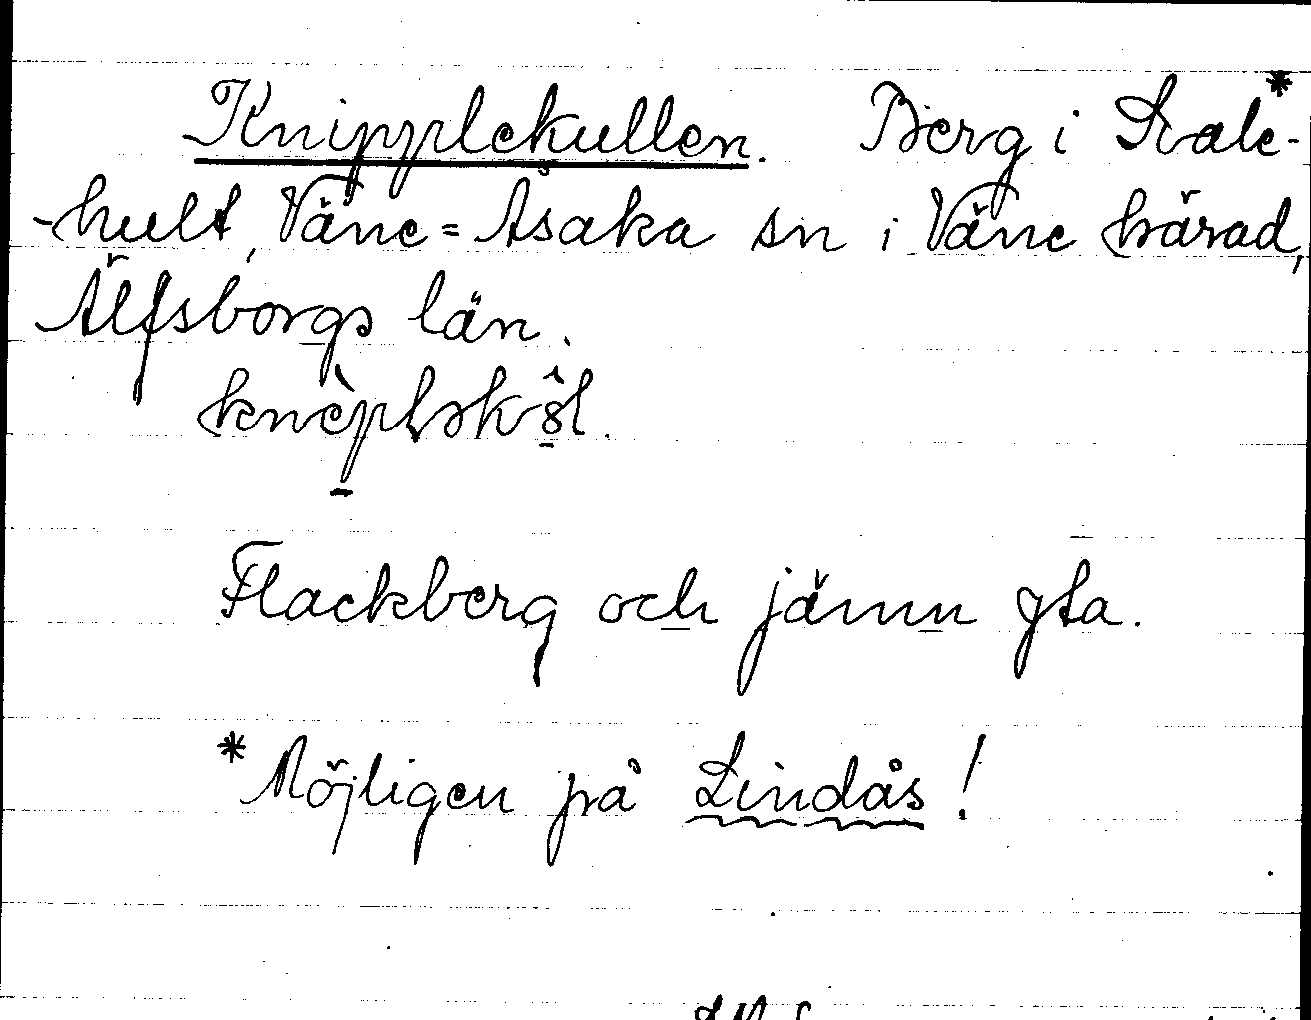 Knipplekullen. Berg i Skale-*
-hult, Väne=Åsaka sn i Väne härad,
Älfsborgs län.
Flackberg och jämn yta.
*Möjligen på Lindås!